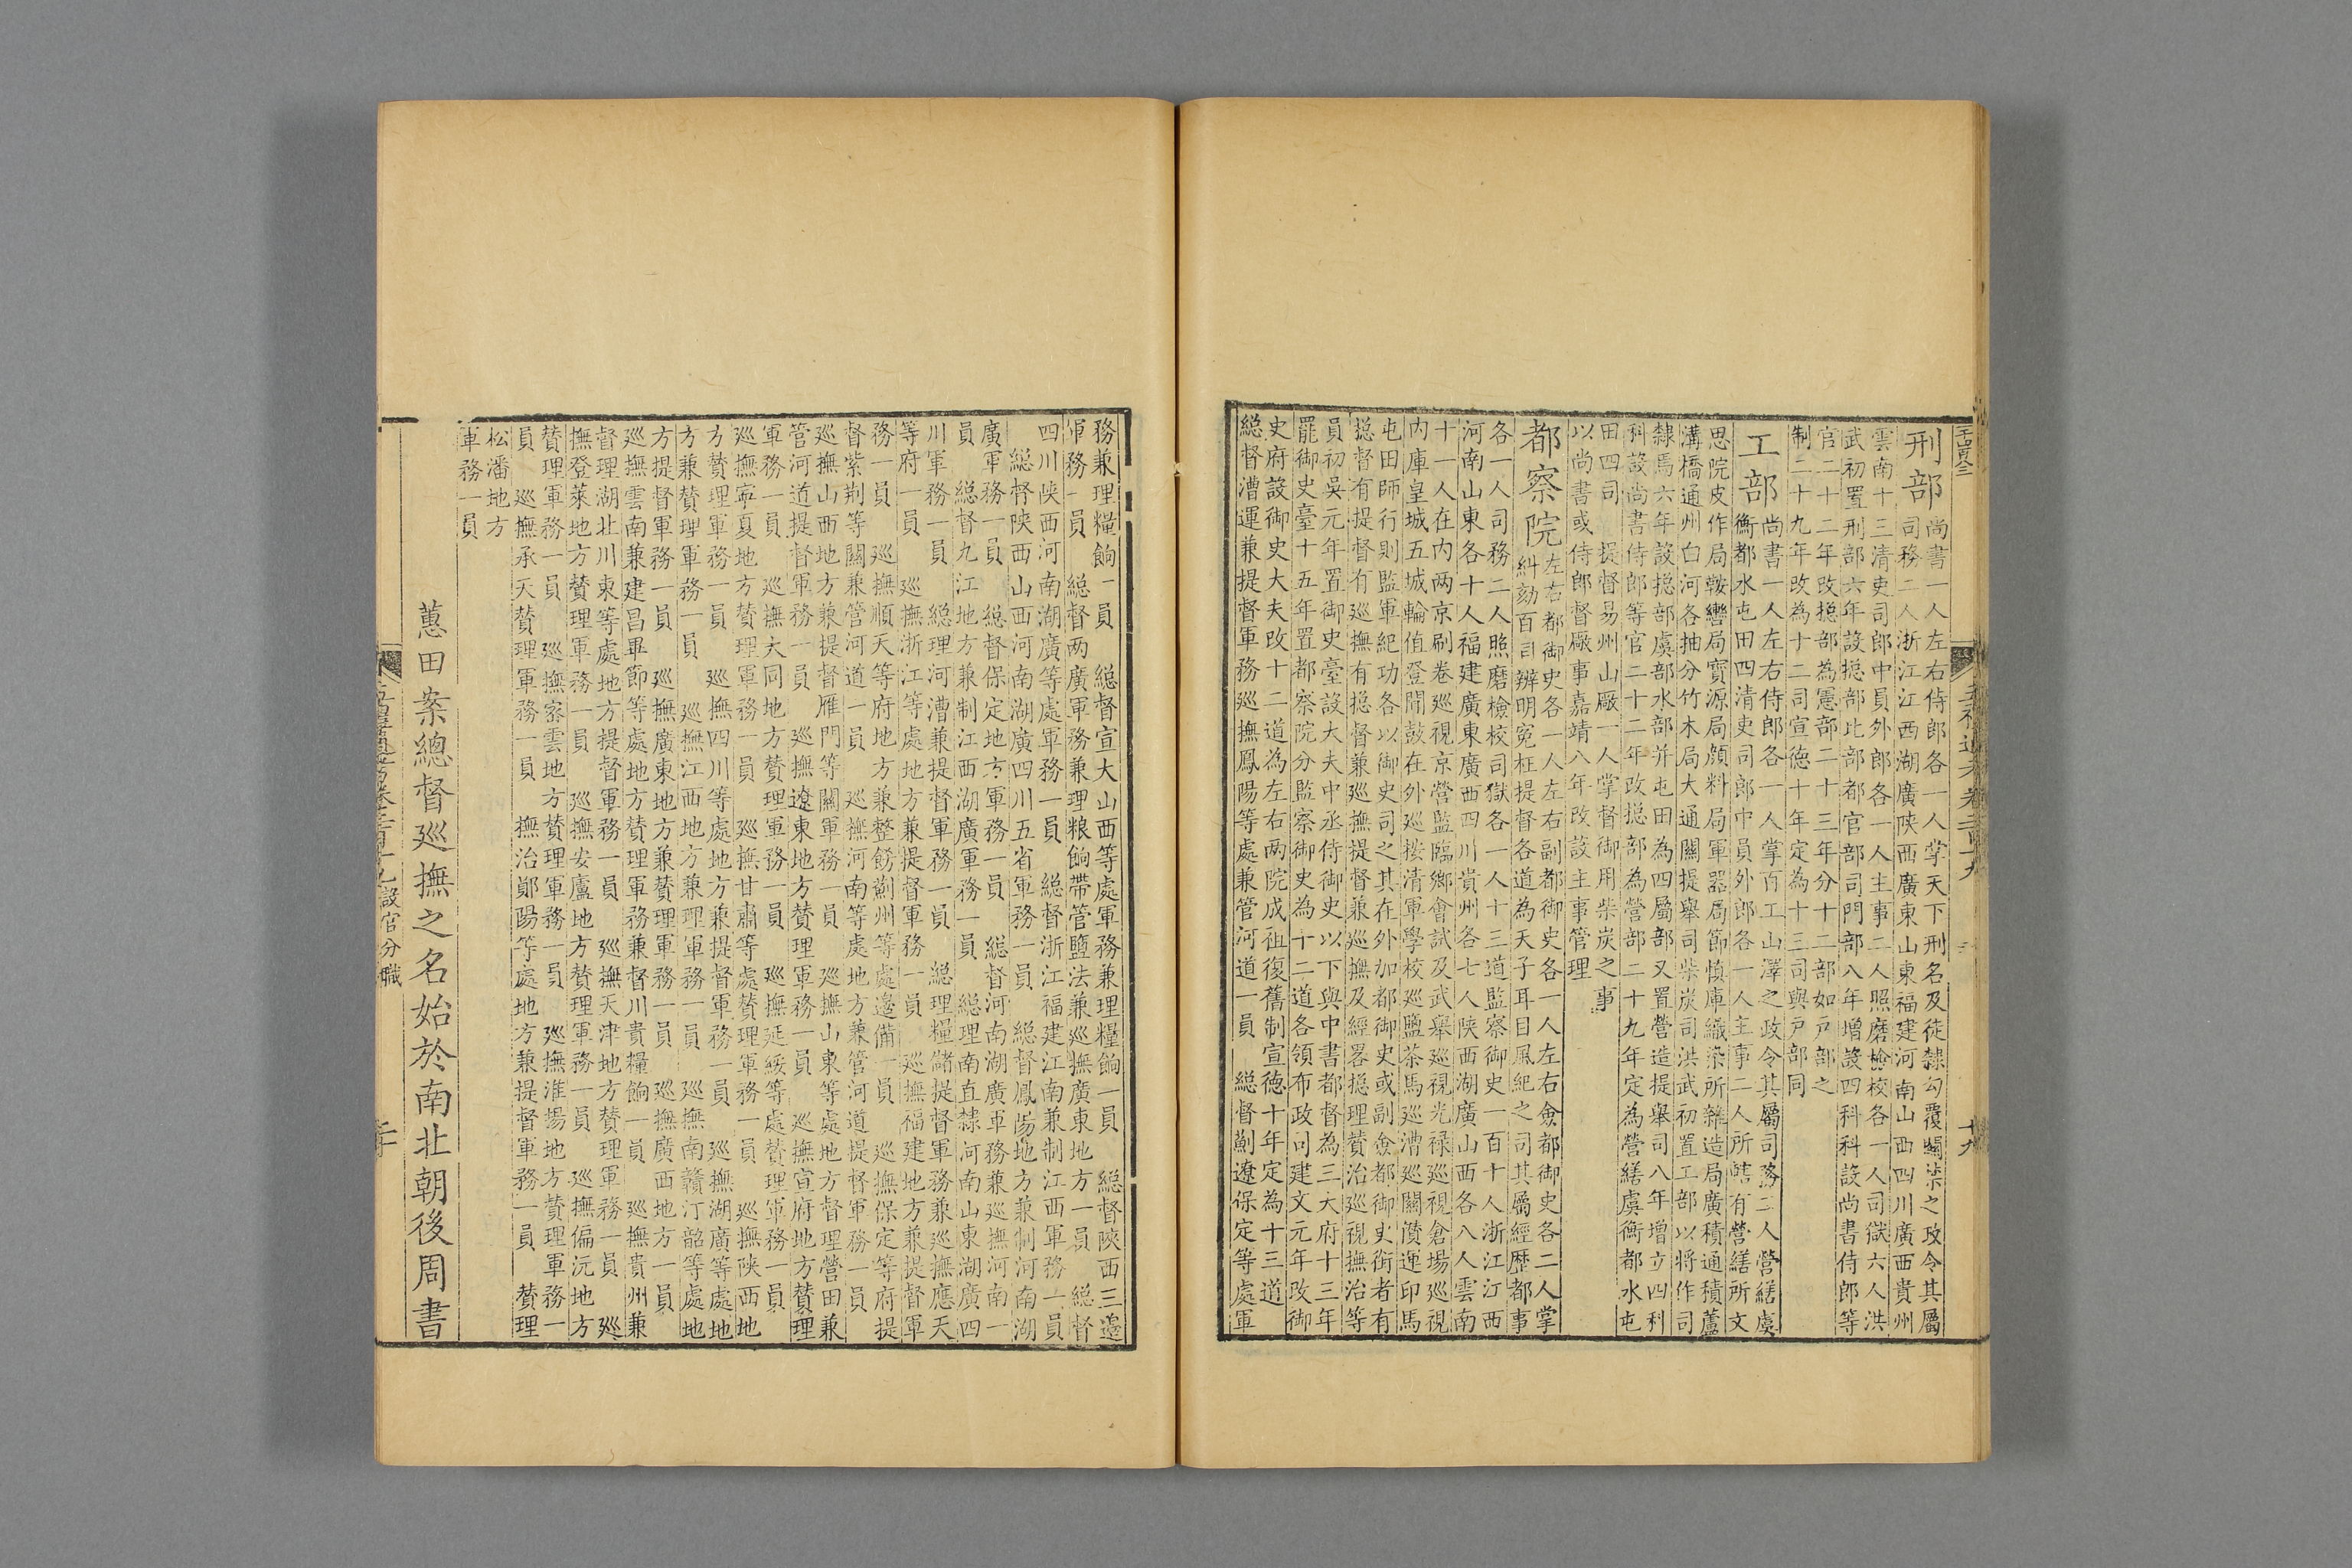 刑部尚書一人左右侍郎各一人掌天下刑名及徒隸勾覆關禁之政令其屬
司務二人浙江江西湖廣陝西廣東山東福建河南山西四川廣西貴州
雲南十三清吏司郎中員外郎各一人主事二人照磨檢校各一人司獄六人洪
武初置刑部六年設揔部比部都官部司門部八年增設四科科設尚書侍郎等
官二十二年改揔部為憲部二十三年分十二部如戸部之
制二十九年改為十二司宣德十年定為十三司與戸部同
工部尚書一人左右侍郎各一人掌百工山澤之政令其屬司務二人營繕虞
衡都水屯田四清吏司郎中員外郎各一人主事二人所轄有營繕所文
思院皮作局鞍轡局寳源局顔料局軍器局節慎庫織染所雜造局廣積通積蘆
溝橋通州白河各抽分竹木局大通關提舉司柴炭司洪武初置工部以将作司
隸焉六年設揔部虞部水部并屯田為四屬部又置營造提舉司八年增立四科
科設尚書侍郎等官二十二年改揔部為營部二十九年定為營繕虞衡都水屯
田四司　提督易州山廠一人掌督御用柴炭之事
以尚書或侍郎督廠事嘉靖八年改設主事管理
都察院左右都御史各一人左右副都御史各一人左右僉都御史各二人掌
糾劾百司辨明冤枉提督各道為天子耳目風紀之司其屬經歷都事
各一人司務二人照磨檢校司獄各一人十三道監察御史一百十人浙江江西
河南山東各十人福建廣東廣西四川貴州各七人陝西湖廣山西各八人雲南
十一人在内两京刷卷巡視京營監臨鄉會試及武舉巡視光禄巡視倉場巡視
内庫皇城五城輪值登聞鼓在外巡按清軍學校巡鹽茶馬巡漕巡關儹運印馬
屯田師行則監軍紀功各以御史司之其在外加都御史或副僉都御史銜者有
揔督有提督有巡撫有揔督兼巡撫提督兼巡撫及經畧揔理賛治巡視撫治等
員初吳元年置御史臺設大夫中丞侍御史以下與中書都督為三大府十三年
罷御史臺十五年置都察院分監察御史為十二道各領布政司建文元年改御
史府設御史大夫改十二道為左右两院成祖復舊制宣德十年定為十三道
総督漕運兼提督軍務巡撫鳳陽等處兼管河道一員　総督薊遼保定等處軍
務兼理糧餉一員　総督宣大山西等處軍務兼理糧餉一員　総督陝西三邊
軍務一員　総督两廣軍務兼理粮餉帶管鹽法兼巡撫廣東地方一員　総督
四川陝西河南湖廣等處軍務一員　総督浙江福建江南兼制江西軍務一員
　総督陝西山西河南湖廣四川五省軍務一員　総督鳳陽地方兼制河南湖
廣軍務一員　総督保定地方軍務一員　総督河南湖廣軍務兼巡撫河南一
員　総督九江地方兼制江西湖廣軍務一員　総理南直隸河南山東湖廣四
川軍務一員　総理河漕兼提督軍務一員　総理糧儲提督軍務兼巡撫應天
等府一員　巡撫浙江等處地方兼提督軍務一員　巡撫福建地方兼提督軍
務一員　巡撫順天等府地方兼整飭薊州等處邊備一員　巡撫保定等府提
督紫荆等關兼管河道一員　巡撫河南等處地方兼管河道提督軍務一員
巡撫山西地方兼提督雁門等關軍務一員　巡撫山東等處地方督理營田兼
管河道提督軍務一員　巡撫遼東地方賛理軍務一員　巡撫宣府地方賛理
軍務一員　巡撫大同地方賛理軍務一員　巡撫延綏等處賛理軍務一員
巡撫寧夏地方賛理軍務一員　巡撫甘肅等處賛理軍務一員　巡撫陝西地
方賛理軍務一員　巡撫四川等處地方兼提督軍務一員　巡撫湖廣等處地
方兼賛理軍務一員　巡撫江西地方兼理軍務一員　巡撫南贛汀韶等處地
方提督軍務一員　巡撫廣東地方兼賛理軍務一員　巡撫廣西地方一員
巡撫雲南兼建昌畢節等處地方賛理軍務兼督川貴糧餉一員　巡撫貴州兼
督理湖北川東等處地方提督軍務一員　巡撫天津地方賛理軍務一員　巡
撫登萊地方賛理軍務一員　巡撫安廬地方賛理軍務一員　巡撫偏沅地方
賛理軍務一員　巡撫密雲地方賛理軍務一員　巡撫淮揚地方賛理軍務一
員　巡撫承天賛理軍務一員　撫治鄖陽等處地方兼提督軍務一員　賛理
松潘地方
軍務一員
蕙田案總督巡撫之名始於南北朝後周書